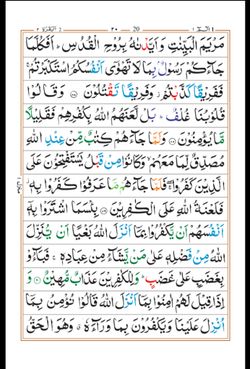 الٓمّٓ ١ ٢٠ 20 البقرة ٢ 2
مَرْيَمَ الْبَيِّنٰتِ وَاَيَّدْنٰهُ بِرُوْحِ الْقُدُسِ ؕ اَفَكُلَّمَا
جَآءَكُمْ رَسُوْلٌۢ بِمَا لَا تَهْوٰٓى اَنْفُسُكُمُ اسْتَكْبَرْتُمْ ۚ
فَفَرِيْقًا كَذَّبْتُمْ ؗ وَفَرِيْقًا تَقْتُلُوْنَ ۝ وَقَالُوْا
قُلُوْبُنَا غُلْفٌ ؕ بَلْ لَّعَنَهُمُ اللّٰهُ بِكُفْرِهِمْ فَقَلِيْلًا
مَّا يُؤْمِنُوْنَ ۝ وَلَمَّا جَآءَهُمْ كِتٰبٌ مِّنْ عِنْدِ اللّٰهِ
مُصَدِّقٌ لِّمَا مَعَهُمْ ۙ وَكَانُوْا مِنْ قَبْلُ يَسْتَفْتِحُوْنَ عَلَى
الَّذِيْنَ كَفَرُوْا ۚ فَلَمَّا جَآءَهُمْ مَّا عَرَفُوْا كَفَرُوْا بِهٖ ؗ
فَلَعْنَةُ اللّٰهِ عَلَى الْكٰفِرِيْنَ ۝ بِئْسَمَا اشْتَرَوْا بِهٖٓ
اَنْفُسَهُمْ اَنْ يَّكْفُرُوْا بِمَآ اَنْزَلَ اللّٰهُ بَغْيًا اَنْ يُّنَزِّلَ
اللّٰهُ مِنْ فَضْلِهٖ عَلٰى مَنْ يَّشَآءُ مِنْ عِبَادِهٖ ۚ فَبَآءُوْ
بِغَضَبٍ عَلٰى غَضَبٍ ؕ وَلِلْكٰفِرِيْنَ عَذَابٌ مُّهِيْنٌ ۝ وَ
اِذَا قِيْلَ لَهُمْ اٰمِنُوْا بِمَآ اَنْزَلَ اللّٰهُ قَالُوْا نُؤْمِنُ بِمَآ
اُنْزِلَ عَلَيْنَا وَيَكْفُرُوْنَ بِمَا وَرَآءَهٗ ۗ وَهُوَ الْحَقُّ